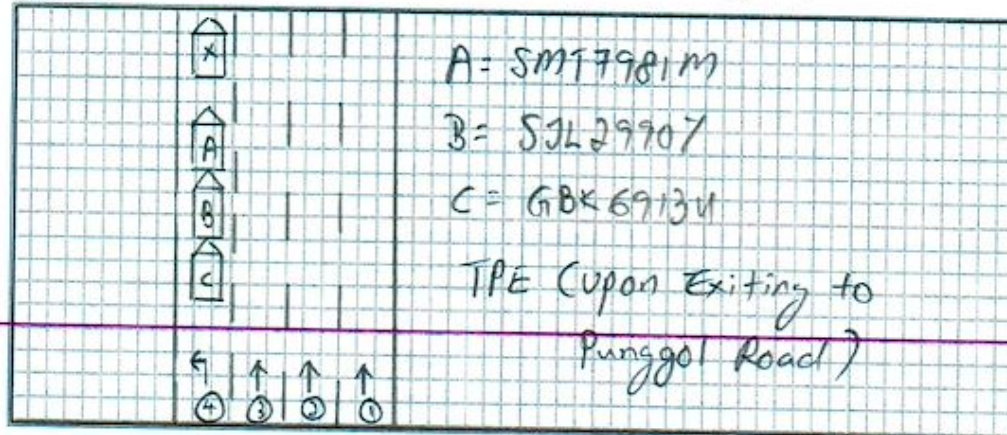 X
A
B
C
④ ③ ② ①
A = SMT7981M
B = SJL2990Y
C = GBK6913U
TPE (Upon Exiting to
Punggol Road)